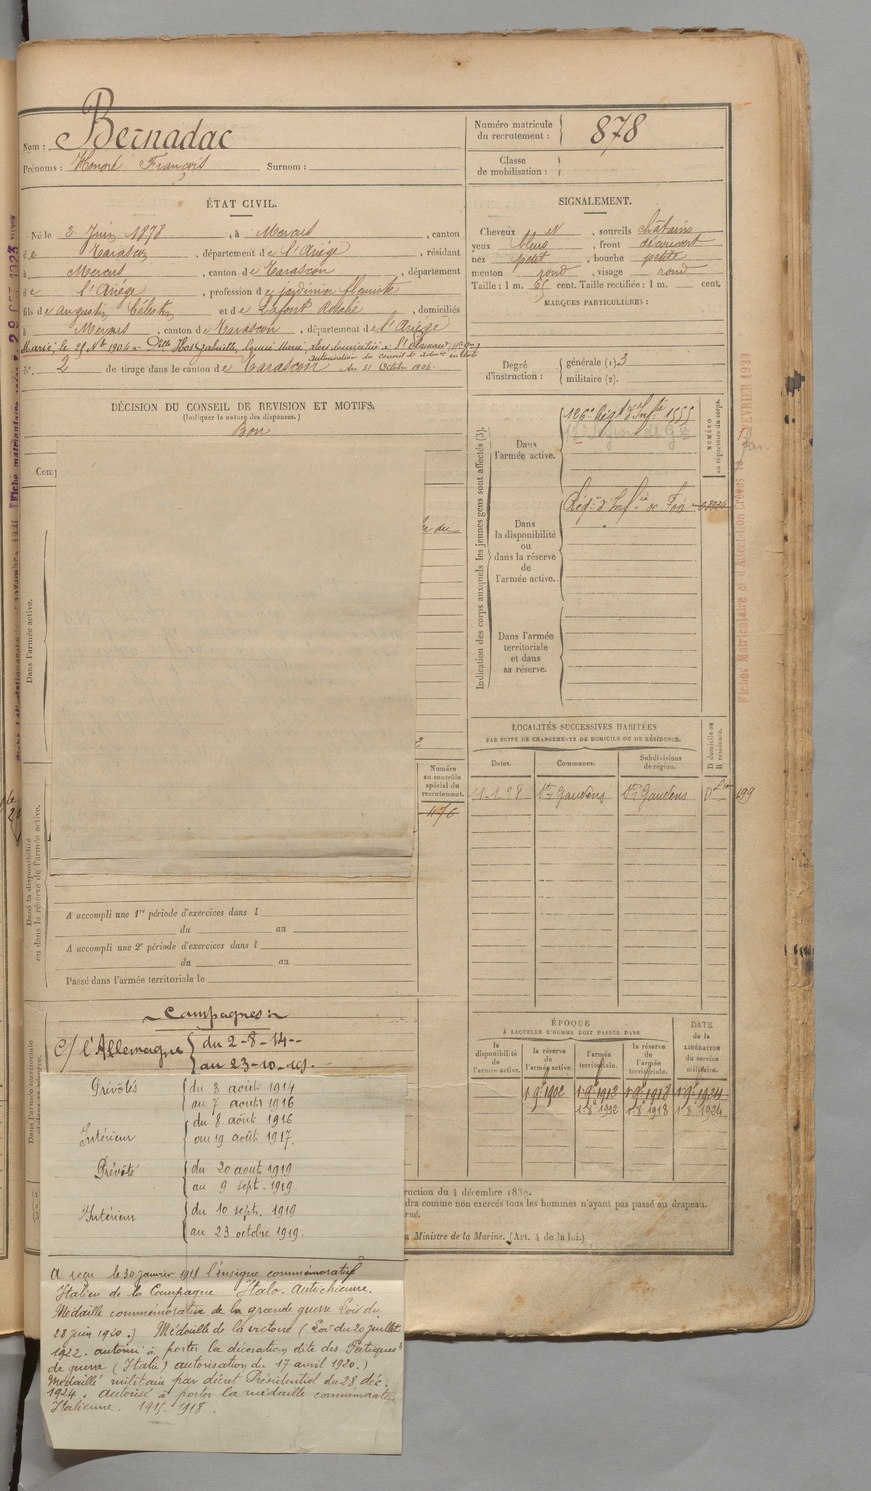 Nom : Bernadac
Prénoms : Honoré François Surnom :
Numéro matricule
du recrutement : 878
Classe
de mobilisation :
ÉTAT CIVIL.
Né le 2 Juin 1878, à Mercus, canton
de Tarascon, département de l'Ariége, résidant
à Mercus, canton de Tarascon, département
de l'Ariége, profession de jardinier fleuriste
fils d'Augustin Célestin et de Lafont Rosalie, domiciliés
à Mercus, canton de Tarascon, département de l'Ariége
Marié, le 28 9bre 1904 à Delle
autorisation du conseil d'
No. 2 de tirage dans le canton de Tarascon du 11 Octobre 1904
SIGNALEMENT.
Cheveux N, sourcils châtains
yeux bleus, front découvert
nez petit, bouche petite
menton rond, visage rond
Taille : 1 m. 65 cent. Taille rectifiée : 1 m. cent.
MARQUES PARTICULIÈRES :
Degré
d'instruction :
générale (1) 3
militaire (2).
DÉCISION DU CONSEIL DE REVISION ET MOTIFS.
(Indiquer la nature des dispenses.)
Bon
Indication des corps auxquels les jeunes gens sont affectés (3).
NUMÉRO
au répertoire du corps.
Dans
l'armée active.
126e Régt d'Infie 1555
Dans
la disponibilité
ou
dans la réserve
de
l'armée active.
Régt d'Infie de Foix
Dans l'armée
territoriale
et dans
sa réserve.
Dans l'armée active.
Dans la disponibilité
ou dans la réserve de l'armée active.
Numéro
au contrôle
spécial du
recrutement.
476
LOCALITÉS SUCCESSIVES HABITÉES
PAR SUITE DE CHANGEMENTS DE DOMICILE OU DE RÉSIDENCE.
Dates. Communes. Subdivisions
de région. D domicile ou
R résidence.
St Gaudens St Gaudens D
A accompli une 1re période d'exercices dans l
du au
A accompli une 2e période d'exercices dans l
du au
Passé dans l'armée territoriale le
Campagnes :
C/ l'Allemagne du 2-8-14
au 23-10-19.
Prévôtés du 3 août 1914
au 7 août 1916
Intérieur du 8 août 1916
au 19 août 1917.
Prévôté du 20 août 1919
au 9 sept. 1919.
Intérieur du 10 sept. 1919
au 23 octobre 1919.
ÉPOQUE
À LAQUELLE L'HOMME DOIT PASSER DANS
DATE
DE LA
LIBÉRATION
du service
militaire.
la
disponibilité
de
l'armée active.
la réserve
de
l'armée active.
l'armée
territoriale.
la réserve
de
l'armée
territoriale.
1 9bre 1902 1 9bre 1912 1 9bre 1918 1 9bre 1924
1 8 1912 1 8 1918 1 8 1924
ruction du 4 décembre 1889.
dra comme non exercés tous les hommes n'ayant pas passé au drapeau.
u Ministre de la Marine. (Art. 4 de la loi.)
A reçu le 30 janvier 1918 l'insigne commémoratif
Italien de la Campagne Italo-Autrichienne.
Médaille commémorative de la grande guerre Loi du
23 juin 1920.) Médaille de la victoire (Loi du 20 juillet
1922. autorisé à porter la décoration dite des Fatigues
de guerre (Italie) autorisation du 17 avril 1920.)
Médaillé militaire par décret Présidentiel du 28 déc.
1924. Autorisé à porter la médaille commémorative
Italienne. 1915-1918.